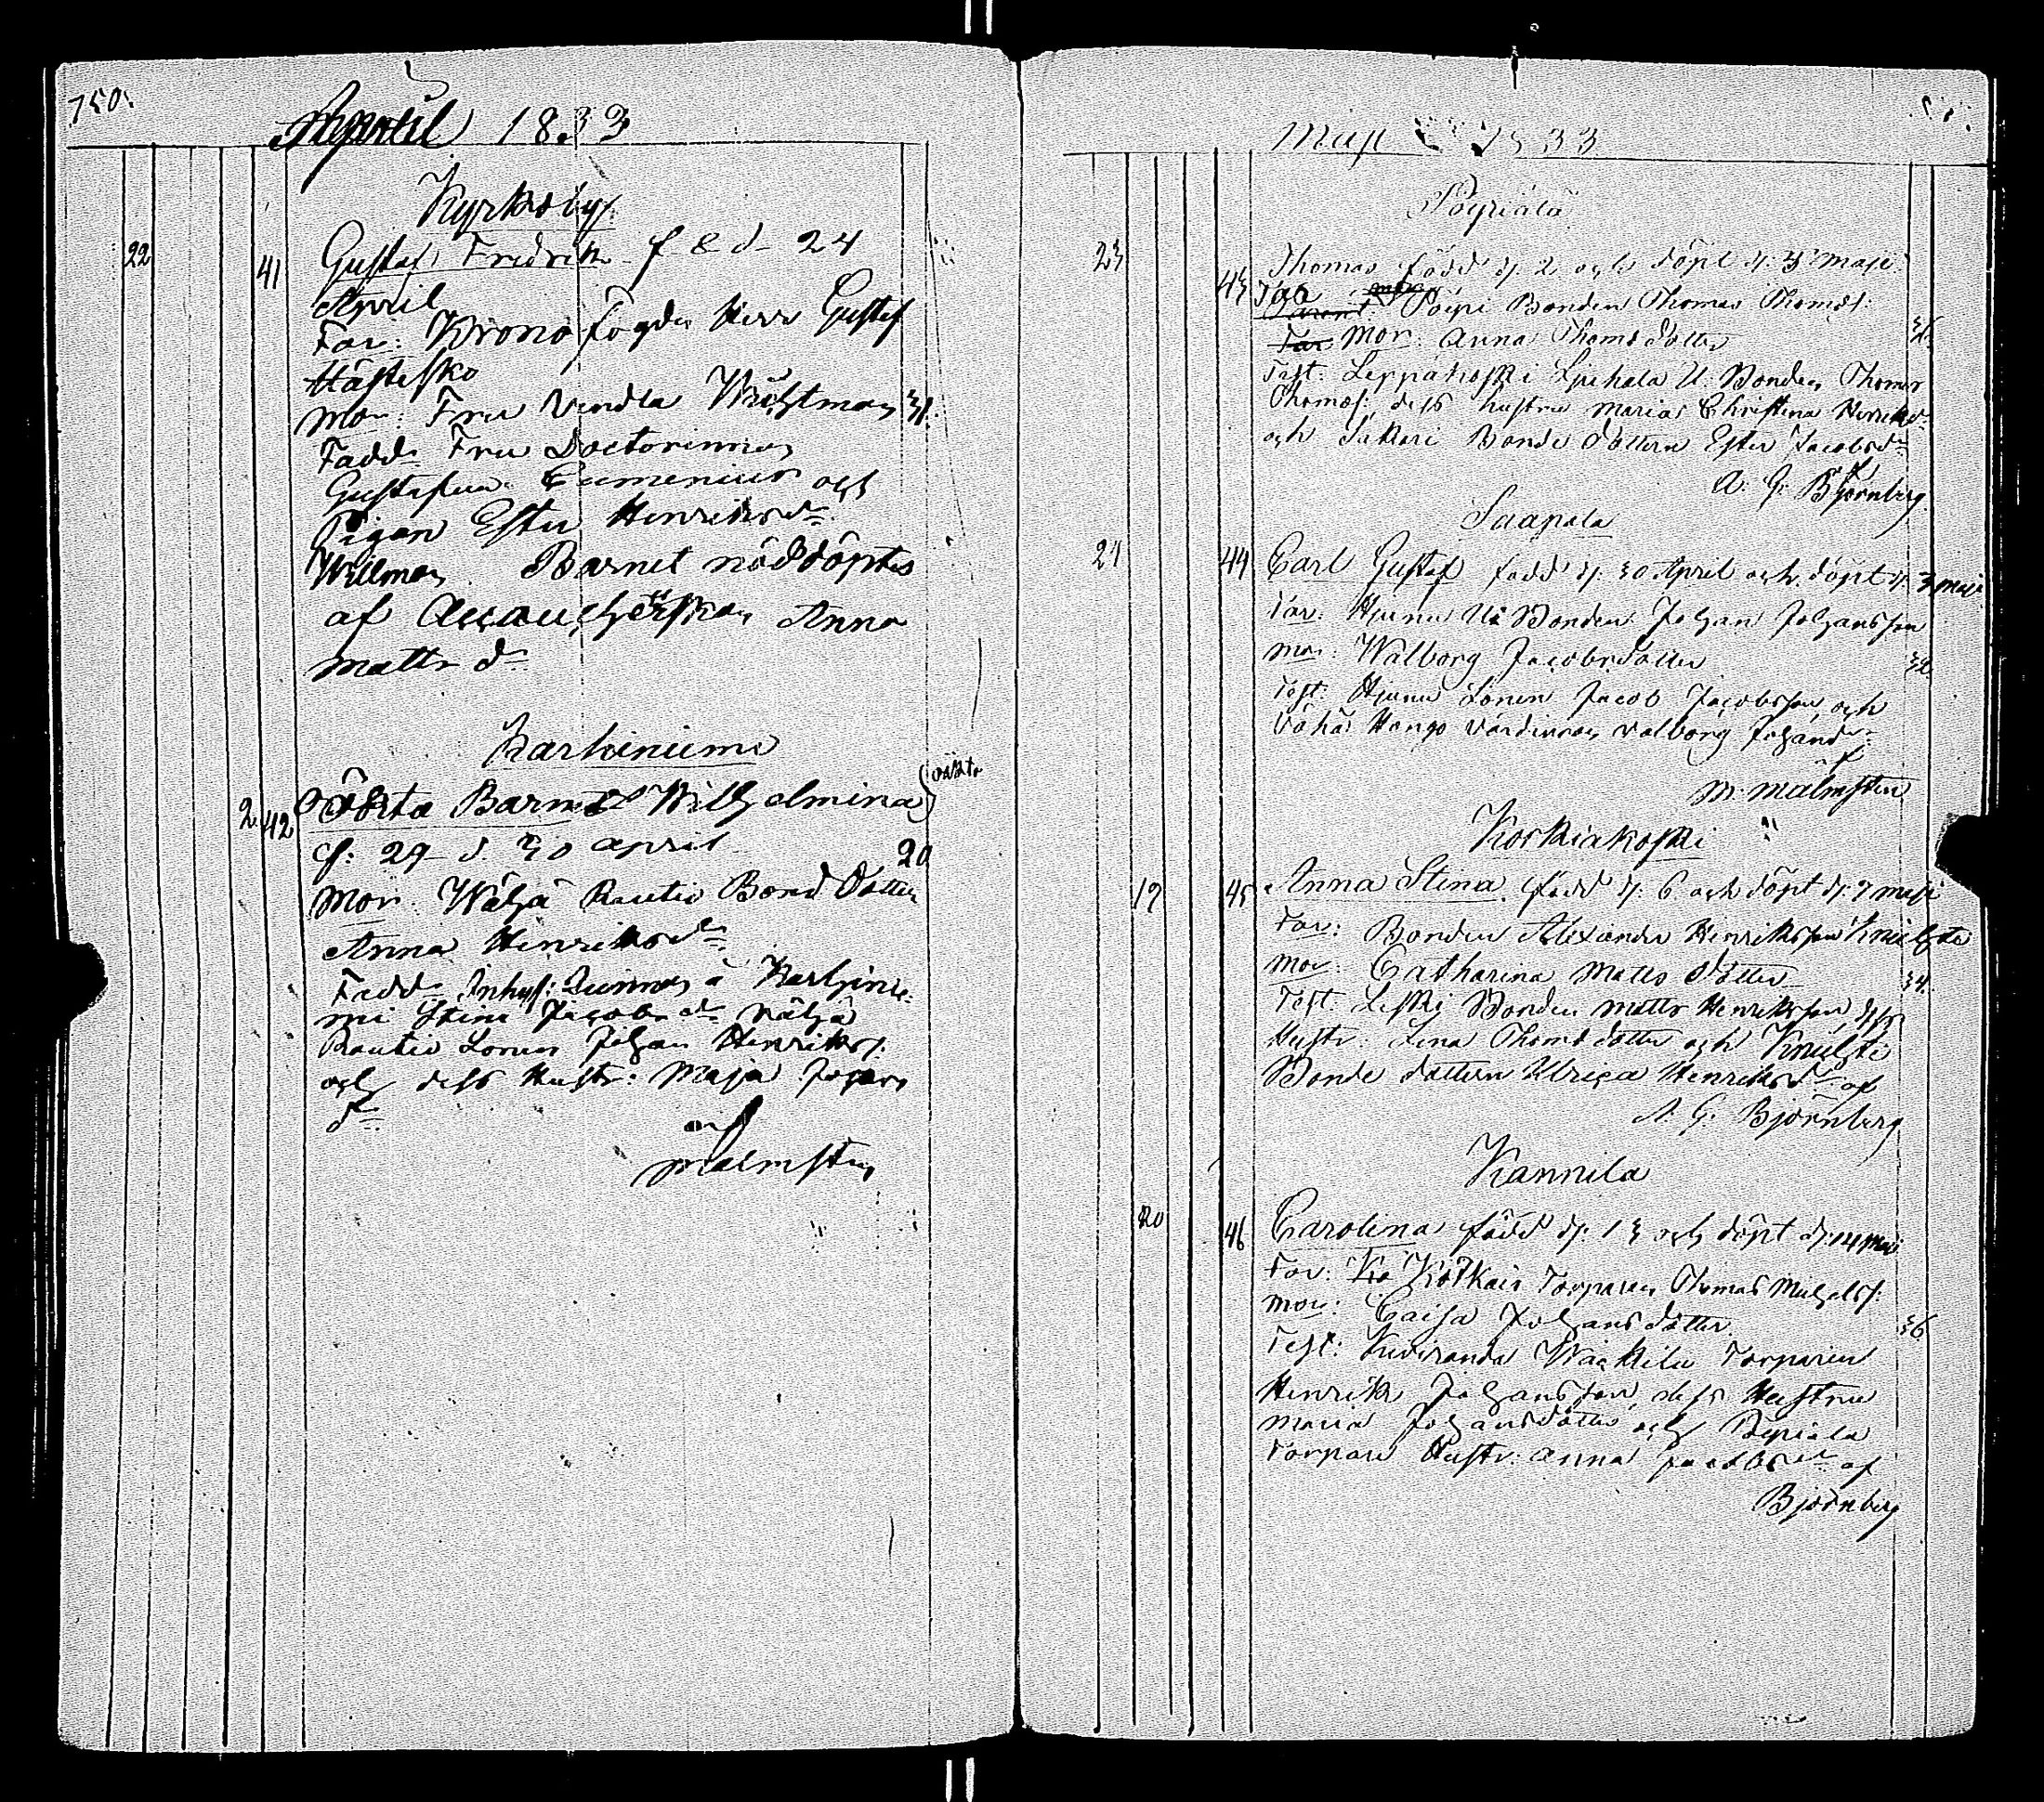 150.
April 1833
Kyrkoby
22 41 Gustaf Fridrik f 8 d 24
April
Far: Kronofogden Herr Gustaf
Hästesko
Mor: Fru Vendla 31.
Fadd. Fru Doctorinnan
Gustafva Eumenius och
Pigan Ester Henriksdr
Willman. Barnet nöddöptes
af Anna
Mattsdr
Karhiniemi
2 42 Oäkta Barnet Wilhelmina oäkta
f: 29 d. 30 april 20
Mor. Wälja Rautio Bond Dotter
Anna Henriksdr
Fadd. Inhys: Quinnan å Karhinie
mi Stina Jacobsdr Välja
Rautio Sonen Johan Henriks.
och dess Hustr: Maja Johans
dr
af
Malmsten
Maji 1833
23 43 Thomas född d. 2 och döpt d. 3 maji
Far Bonden Thomas Thomas:
Far Mor: Anna Thomsdotter 36
Test: Leppäkoski U. Bonden Thomas
Thomas: dess hustru Maria Christina Henriksdr
och Bonde dottern Ester Jacobsdr
af
A. G. Björnberg
Saapala
24 44 Carl Gustaf född d. 30 April och döpt d. 3 maji
Far: U: Bonden Johan Johansson
Mor: Walborg Jacobsdotter 32
Test: Sonen Jacob Jacobsson och
Vähä Hongo Värdinnan Valborg Johansdr
af
M. Malmsten
Korkiakoski
19 45 Anna Stina. född d. 6. och döpt d. 7 maji
Far: Bonden Alexander Henriksson Knuihti
Mor: Catharina Matts dotter 34.
Test: Leski Bonden Matts Henriksson, dess
Hustr: Lena Thomsdotter och Knuihti
Bonde dottern Ulrica Henriksdr af
A. G. Björnberg
Kannila
20 46 Carolina född d. 13 och döpt d. 14 Maji
Far: Ko Torparen Thomas Michels:
Mor: Caisa Johansdotter. 36
Test: Kiviranda Torparen
Henrik Johansson, dess Hustru
Maria Johansdotter och
Torpare Hustr: Anna Jacobsdr af
Björnberg